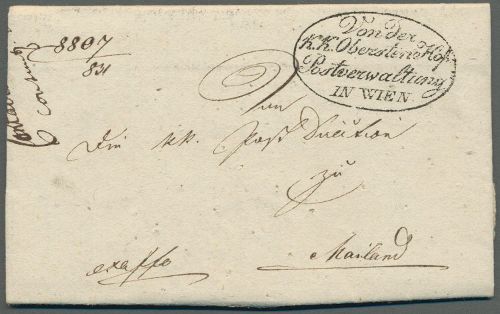 8807
831
Von der
K.K. Obersten Hof
Postverwaltung
IN WIEN
An
Die kk. Post Direction
zu
Mailand
exoffo